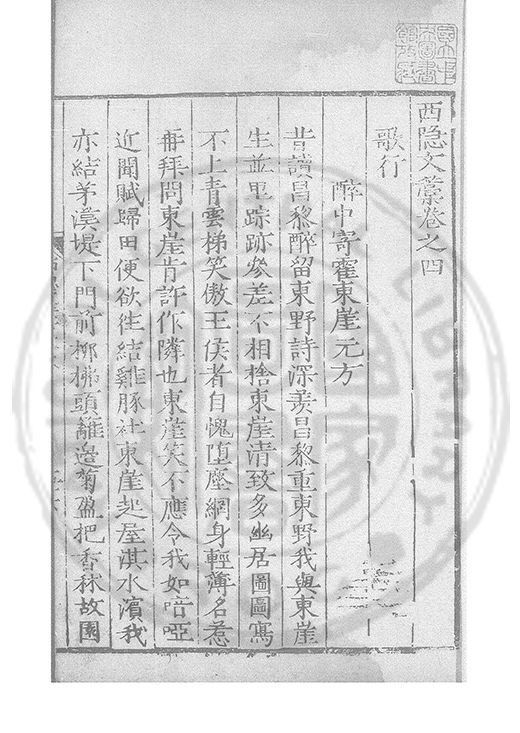 西隐文藁卷之四
歌行
醉中寄霍東崖元方
昔讀昌黎醉留東野詩深羨昌黎重東野我與東崖
生並里踪跡參差不相捨東崖清致多幽居圖圖寫
不上青雲梯笑傲王侯者自愧墮塵網身輕薄名惹
再拜問東崖肯許作隣也東崖笑不應令我如喑啞
近聞賦歸田便欲徃結雞豚社東崖起屋淇水濵我
亦結茅漢堤下門前栁拂頭籬邊菊盈把香秫故園